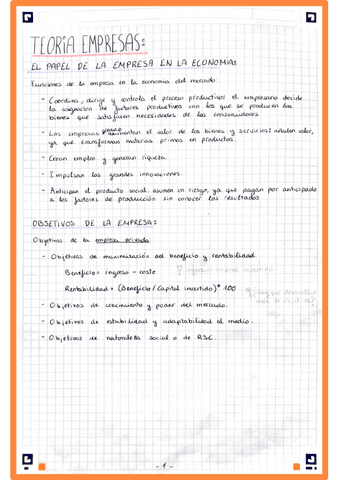 TEORÍA EMPRESAS:
EL PAPEL DE LA EMPRESA EN LA ECONOMIA:
Funciones de la empresa en la economía del mercado:
- Coordina, dirige y controla el proceso productivo: el empresario decide
la asignación de factores productivos con los que se producen los
bienes que satisfacen necesidades de los consumidores
- Las empresas aumentan el valor de los bienes y servicios: añaden valor,
ya que transforman materias primas en productos.
- Crean empleo y generan riqueza.
- Impulsan las grandes innovaciones.
- Anticipan el producto social: asumen un riesgo, ya que pagan por anticipado
a los factores de producción sin conocer los resultados
OBJETIVOS DE LA EMPRESA:
Objetivos de la empresa privada
- Objetivos de maximización del beneficio y rentabilidad.
Beneficio = ingreso - coste
Rentabilidad = (Beneficio / Capital invertido) * 100
- Objetivos de crecimiento y poder del mercado.
- Objetivos de estabilidad y adaptabilidad al medio.
- Objetivos de naturaleza social o de RSC.
- 1 -